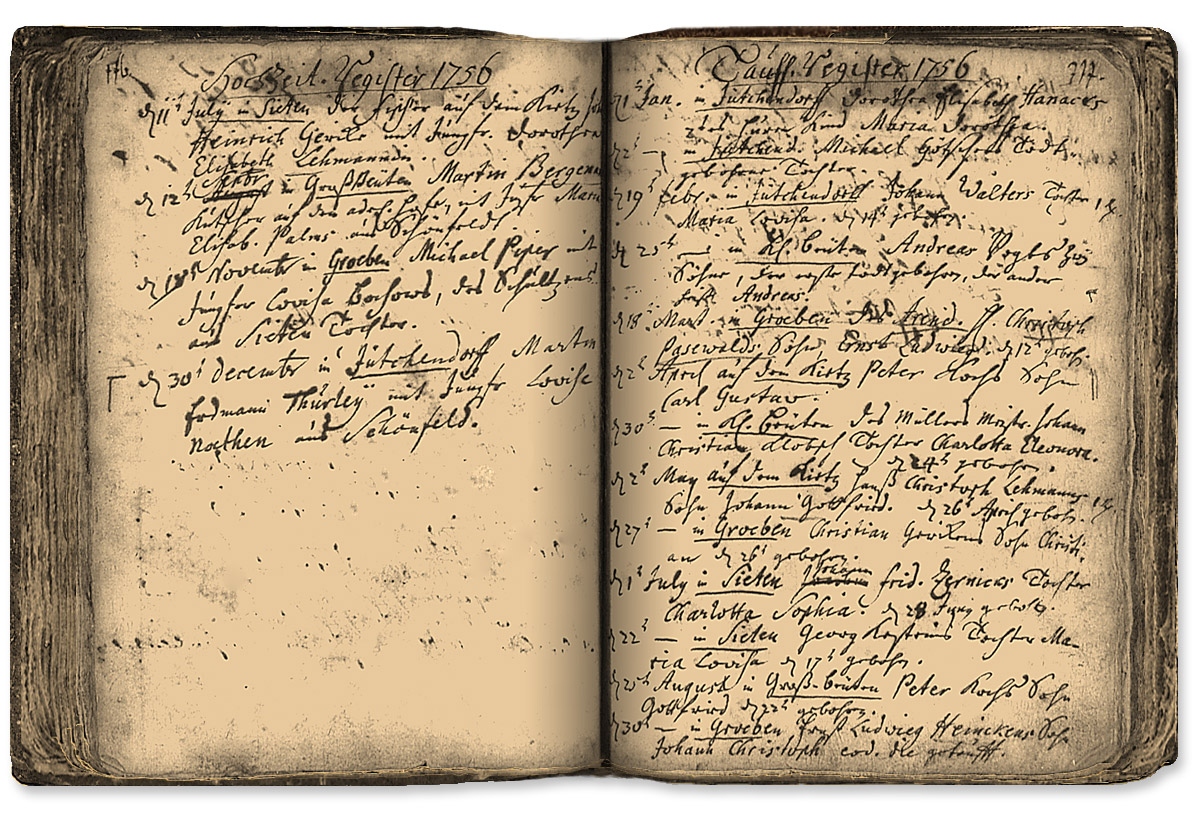 Hochzeit-Register 1756
d 11t July in Sieten der Fischer auf dem Kietz Joh
Heinrich Gericke mit Jungfr. Dorothea
Elisabeth Lehmannin.
d 12t in Großbeuten Martin Bergem
Kutscher auf dem adel. Hofe, mit Jngfr Maria
Elisab. Palms aus Schönfeldt
d 18t Novembr in Groeben Michael Pieper mit
Jungfer Lovisa Bochows, des Schultzens
aus Sieten Tochter.
d 30t Decembr in Jütchendorff Martin
Erdmann Thürley mit Jungfr Lovise
Noethen aus Schönfeld.
Tauff-Register 1756
717.
d 1t Jan. in Jütchendorff Dorothea Elisabeth Hanacks
Kind Maria Dorothea.
d 2t — in Jütchend. Michael Todt-
gebohrne Tochter.
d 19t Febr. in Jütchendorff Johann Walters Tochter
Maria Lovisa. d 14t gebohren.
d 25t — in Kl. Beuten Andreas Vogts Zwo
Söhne, der erste todtgebohren, der ander
heißt Andreas.
d 18t Mart. in Groeben des Arend. H. Christoph
Pasewalds Sohn Ernst Ludwieg. d 12t gebohr.
d 2t April auf dem Kietz Peter Kochs Sohn
Carl Gustav.
d 30t — in Kl. Beuten des Müllers Mstr. Johann
Christian Tochter Charlotta Eleonora.
d 24t gebohren.
d 2t May auf dem Kietz Hanß Christoph Lehmanns
Sohn Johann Gottfried. d 26t April gebohr.
d 27t — in Groeben Christian Gerickens Sohn Christi-
an d 26t gebohren.
d 1t July in Sieten Johann Frid. Zernicks Tochter
Charlotta Sophia. d 28 Juny gebohr.
d 22t — in Sieten Georg Tochter Ma-
ria Lovisa d 17t gebohr.
d 25t August in Groß-Beuten Peter Kochs Sohn
Gottfried d 22t gebohren.
d 30t — in Groeben Ernst Ludwieg Heinckens Sohn
Johann Christoph eod. die getaufft.